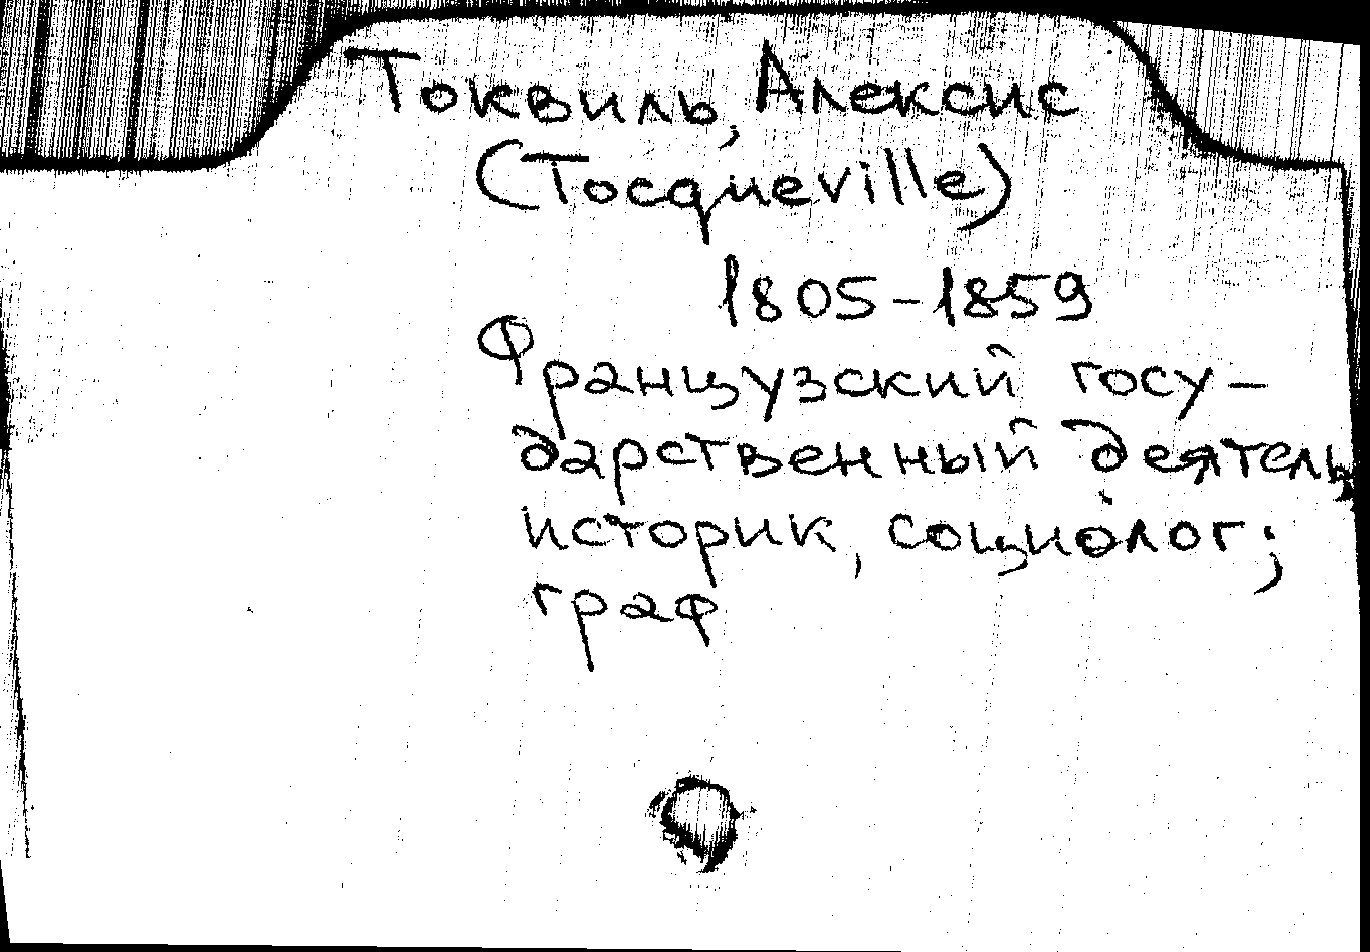 Токвиль, Алексис
(Tocqueville)
1805-1859
Французский госу-
дарственный деятель
историк, социолог;
граф